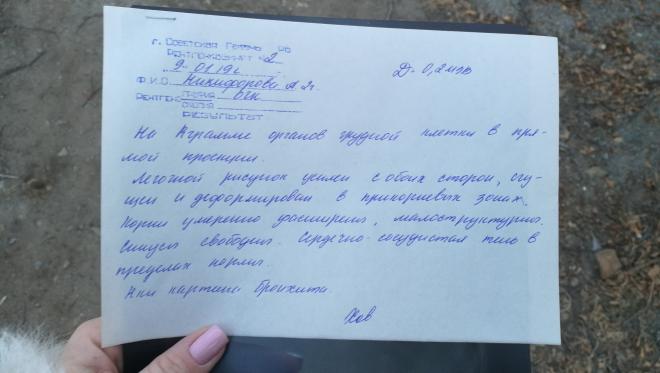 г. Советская Гавань
РЕНТГЕН-КАБИНЕТ №2
9.01.19г.
Д- 0,2 мзв
Ф.И.О. Никифорова А 2г.
РЕНТГЕНО ГРАФИЯ ОГК
СКОПИЯ
РЕЗУЛЬТАТ
На Rграмме органов грудной клетки в пря-
мой проекции.
Легочной рисунок усилен с обоих сторон, сгу-
щен и деформирован в прикорневых зонах.
Корни умеренно расширены, малоструктурны.
Синусы свободны. Сердечно-сосудистая тень в
пределах нормы.
картина бронхита.